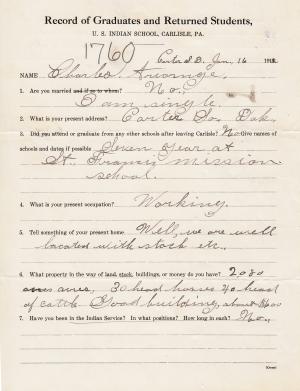 Record of Graduates and Returned Students,
U. S. INDIAN SCHOOL, CARLISLE, PA.
1760
Jan. 16 191
NAME Charles
1. Are you married and if so to whom? No.
I am single
2. What is your present address? Carter So. Dak.
3. Did you attend or graduate from any other schools after leaving Carlisle? No Give names of
schools and dates if possible Seven year at
St. Francis mission
school.
4. What is your present occupation? Working.
5. Tell something of your present home. Well, we are well
located with stock etc.,
6. What property in the way of land, stock, buildings, or money do you have? 2080
acres, 30 head horses 40 head
of cattle Good building, about $600
7. Have you been in the Indian Service? In what positions? How long in each? No.,
(OVER)